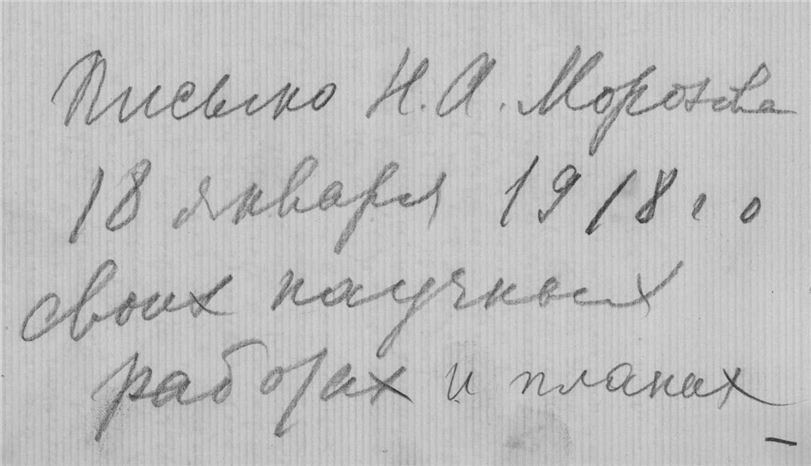 Письмо Н. А. Морозова
18 января 1918 г. о
своих научных
работах и планах